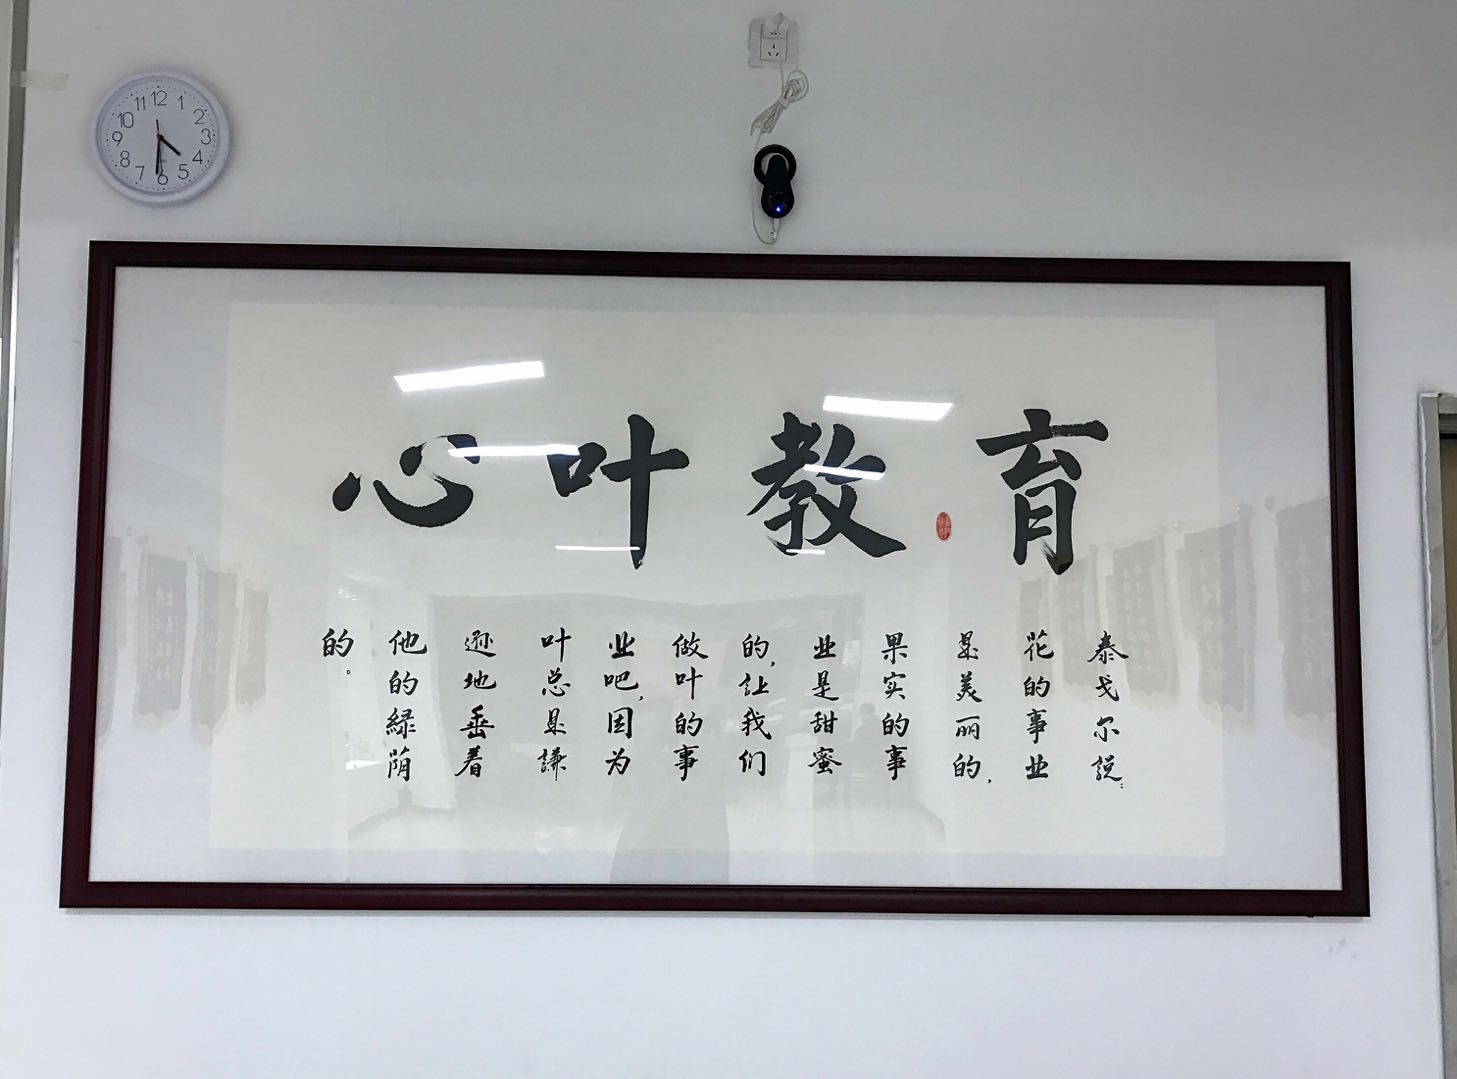 11 12 1
10 2
9 3
8 4
7 6 5
心叶教育
泰戈尔说：
花的事业
是美丽的，
果实的事
业是甜蜜
的，让我们
做叶的事
业吧，因为
叶总是谦
逊地垂着
他的绿荫
的。